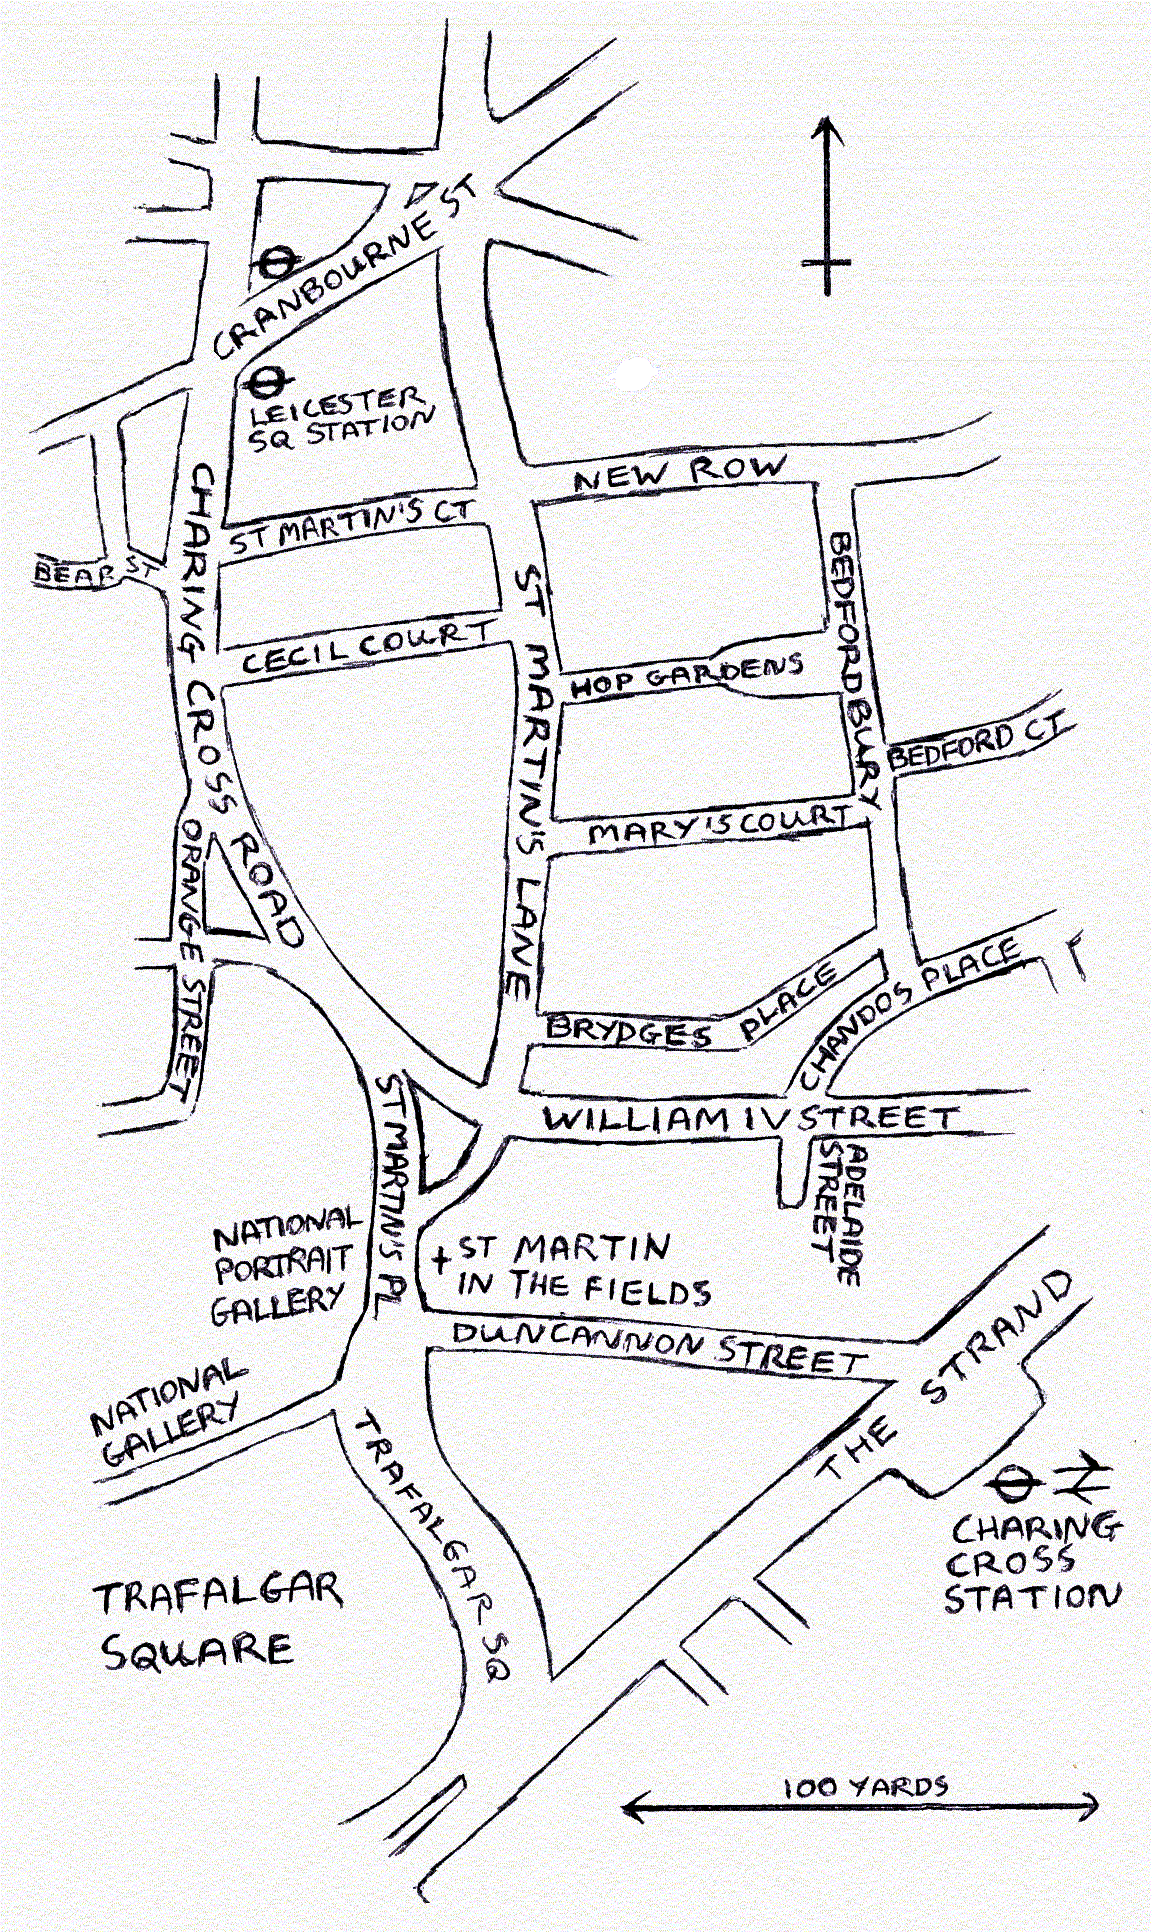 CRANBOURNE ST
LEICESTER
SQ STATION
NEW ROW
CHARING CROSS ROAD
ST MARTIN'S CT
BEAR ST
BEDFORDBURY
ST MARTIN'S LANE
CECIL COURT
HOP GARDENS
BEDFORD CT
MARY'S COURT
ORANGE STREET
BRYDGES PLACE
CHANDOS PLACE
WILLIAM IV STREET
ADELAIDE
STREET
ST MARTIN'S PL
NATIONAL
PORTRAIT
GALLERY
+ ST MARTIN
IN THE FIELDS
DUNCANNON STREET
THE STRAND
NATIONAL
GALLERY
TRAFALGAR SQ
CHARING
CROSS
STATION
TRAFALGAR
SQUARE
100 YARDS